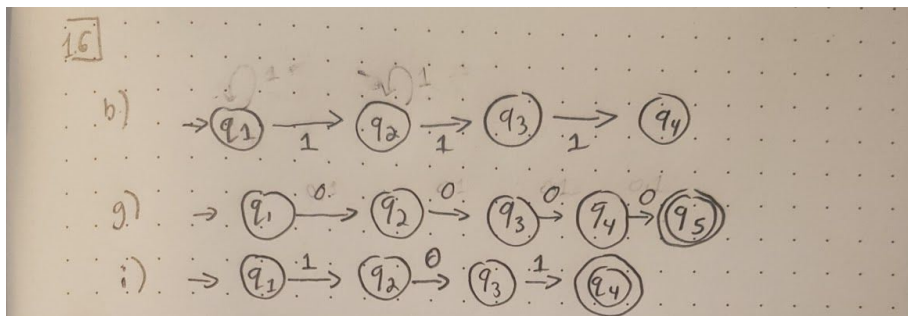 1.6
1 1
b) q1 1 q2 1 q3 1 q4
g) q1 0 q2 0 q3 0 q4 0 q5
i) q1 1 q2 0 q3 1 q4